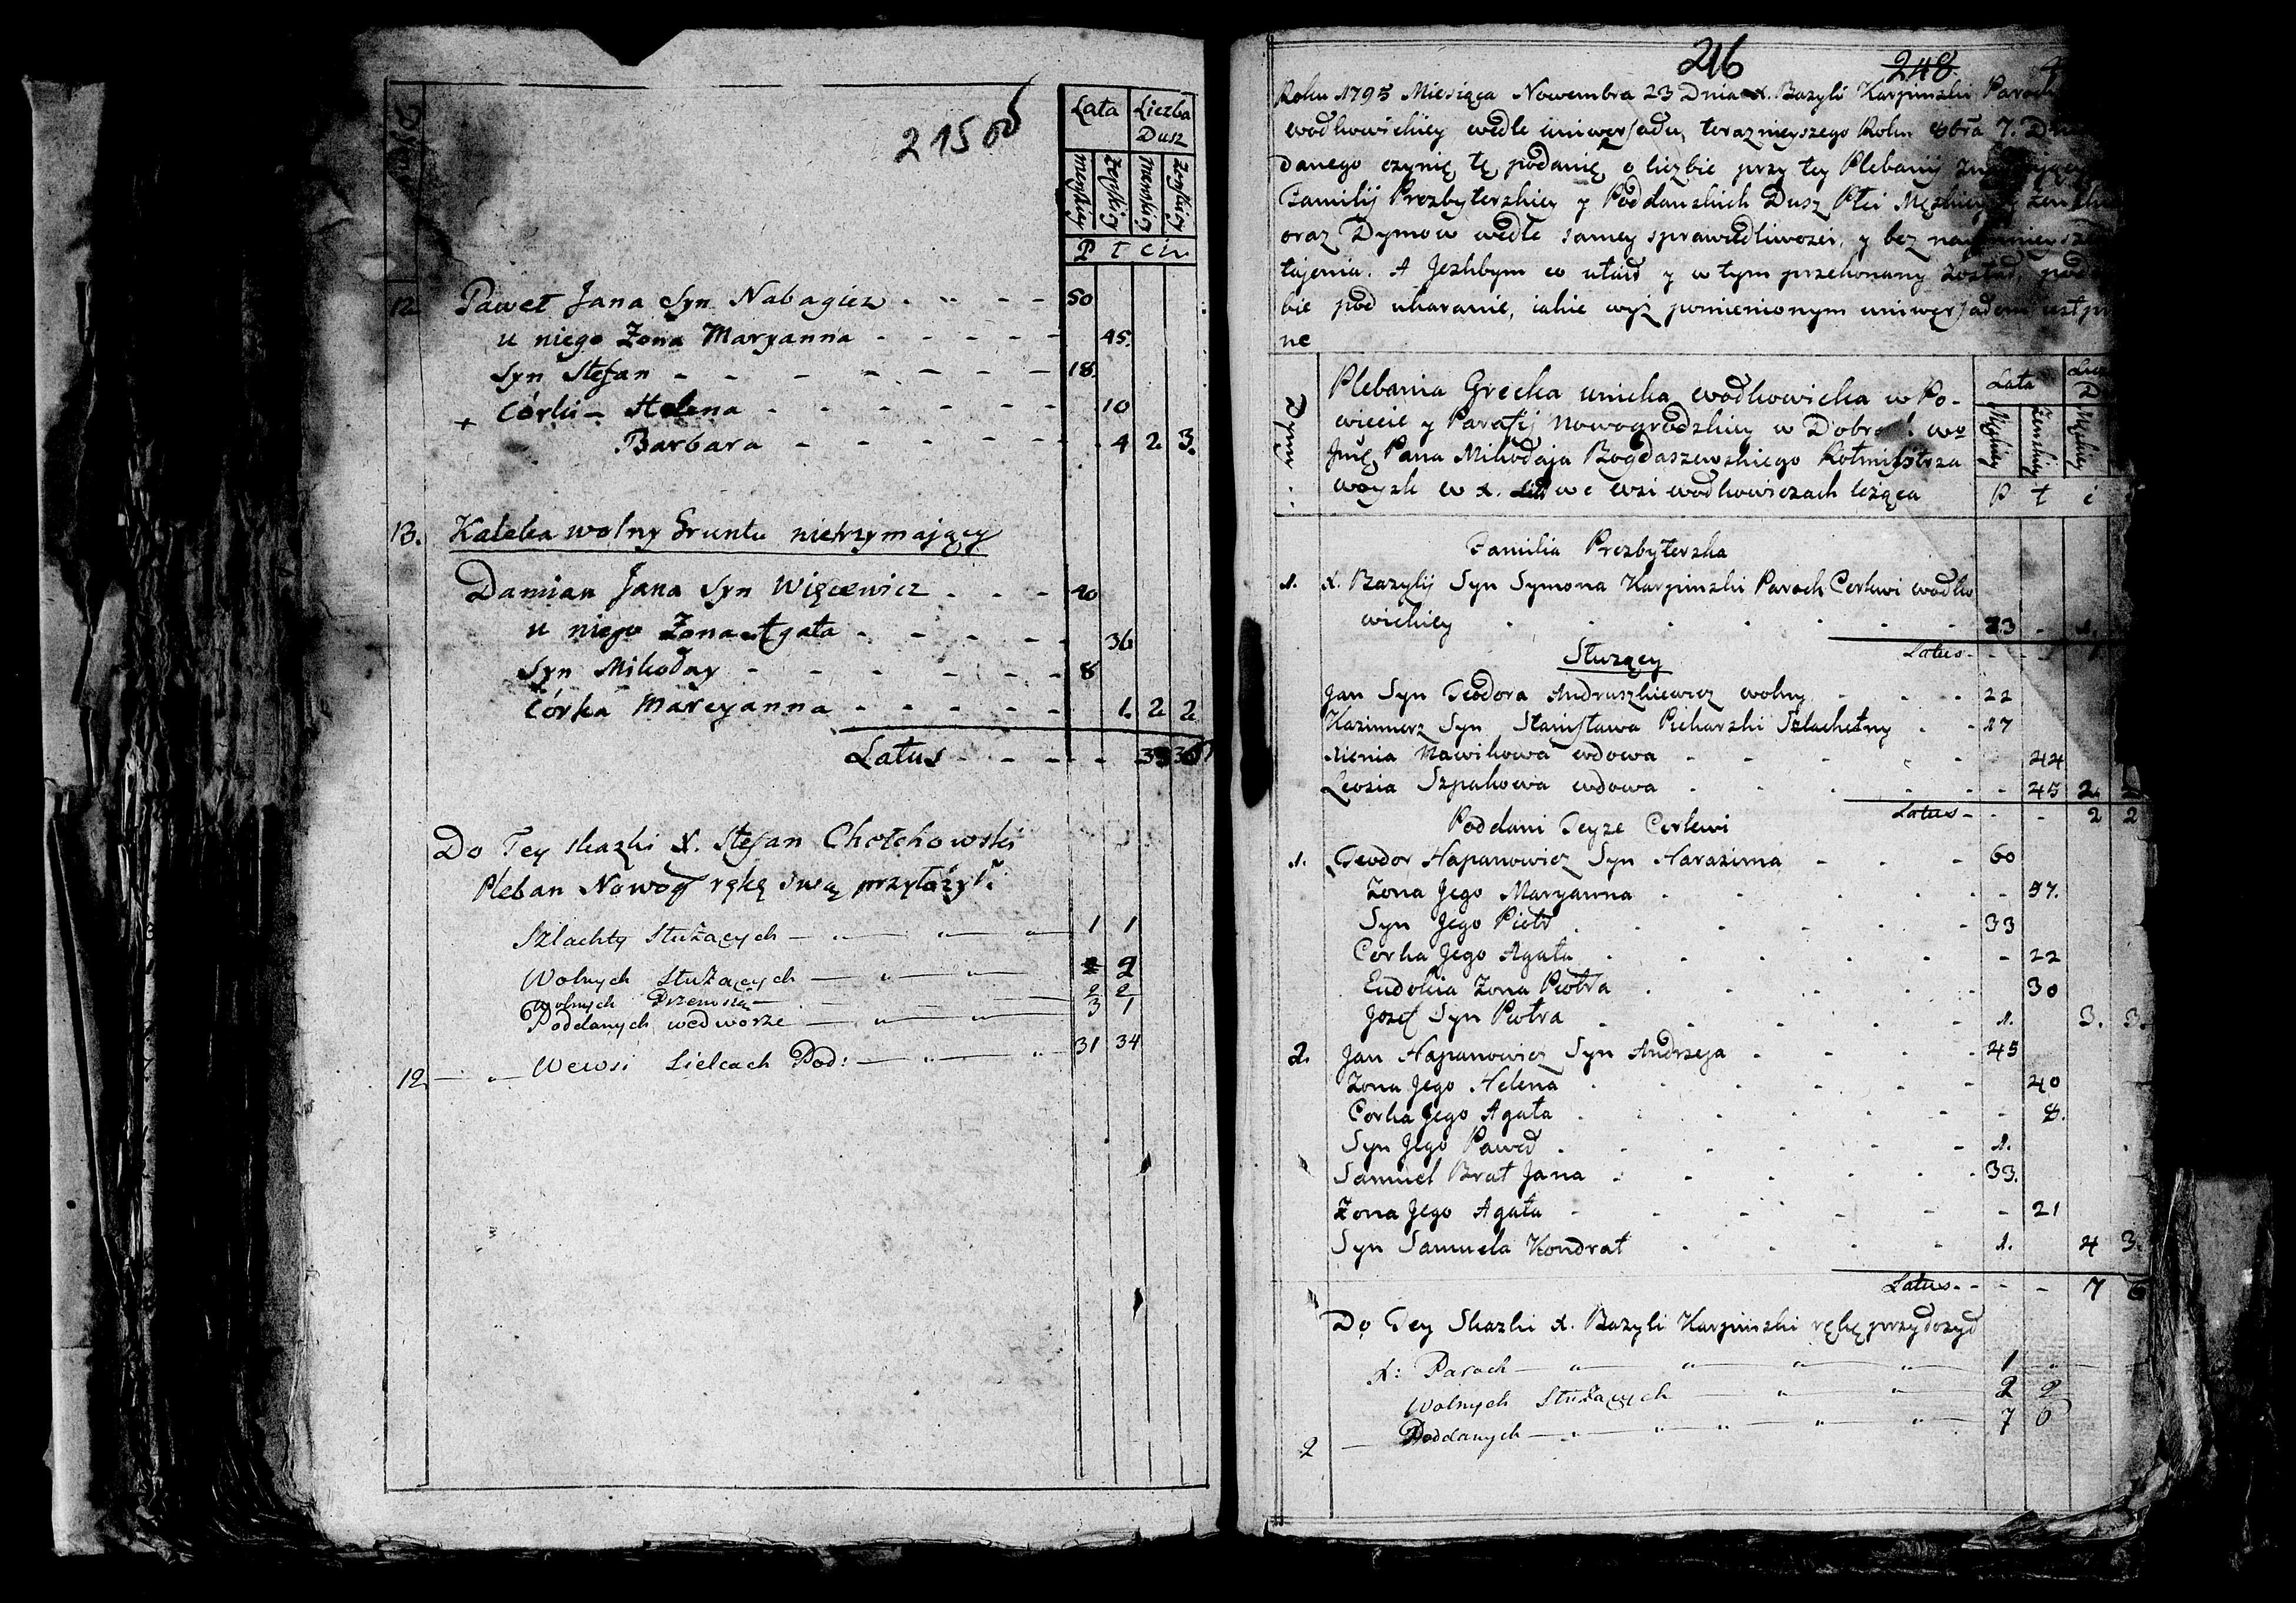 215 об
Dymy
Lata Liczba Dusz
męskiey żeńskiey męskiey żeńskiey
P t c i n
12 Paweł Jana Syn Nabagiez 50
u niego Żona Maryanna 45.
Syn Stefan 18.
+ Córki Helena 10
Barbara 4 2 3.
13. Kaleka wolny Gruntu nietrzymaiący
Damian Jana Syn Więcewicz 40
u niego Żona Agata 36
Syn Mikołay 8
Córka Maryanna 1. 2 2
Latus
Do Tey skazki X. Stefan Chołchowski
Pleban Nowog rękę swą przyłożył.
Szlachty Służących 1 1
Wolnych Służących 2 2
Wolnych 2 2
Poddanych wedworze 3 1
12 Wewsi Sielcach Pod: 31 34
216 248
Roku 1795 Miesiąca Nowembra 23 Dnia X. Bazyli Karpinski Paroch
wołkowickiey wedle uniwersału, teraznieyszego Roku 8bra 7. Dnia
danego czynię tę podanię o liczbie przy tey Plebanij
Familij Prezbyterskiey y Poddanskich Dusz Płci Męskiey y żenskiey
oraz Dymow wedle samey sprawiedliwosci, y bez naymnieyszego
tajenia. A Jeżlibym co utaił y w tym przekonany został,
bie pod ukaranie, iakie wyż pomienionym uniwersałem
ne
Dymy
Plebania Grecka unicka wołkowicka w Po-
wiecie y Parafij Nowogrodzkiey w Dobrach wo
Jmę Pana Mikołaja Bogdaszewskiego Rotmistrza
woysk w X. Litt we wsi wołkowiczach leżąca
Lata
Męskiey Żenskiey Męskiey
P t c
Familia Prezbyterska
1. X. Bazylij Syn Symona Karpinski Paroch Cerkwi wołko
wickiey 33 - 1.
Latus - - - 1
Służący
Jan Syn Teodora Andruszkiewicz wolny 22
Kazimierz Syn Stanisława Piekarski Szlachetny 27
Xienia Nawikowa wdowa 44
Zosia Szpakowa wdowa 45 2. 2
Latus - - - 2 2
Poddani Teyże Cerkwi
1. Teodor Hapanowicz Syn Harasima 60
Żona Jego Maryanna 57.
Syn Jego Piotr 33
Corka Jego Agata 22
Eudokia Żona Piotra 30
Jozef Syn Piotra 1. 3. 3.
2. Jan Hapanowicz Syn Andrzeja 45
Żona Jego Helena 40
Corka Jego Agata 8.
Syn Jego Paweł 1.
Samuel Brat Jana 33.
Żona Jego Agata 21
Syn Samuela Kondrat 1. 4 3.
Latus - - - 7 6
Do Tey Skazki X. Bazyli Karpinski rękę przyłożył
X: Paroch 1
Wolnych Służących 2 2
2 Poddanych 7 6